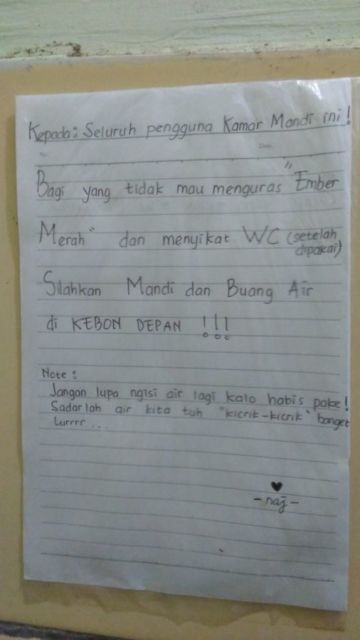 Kepada: Seluruh pengguna Kamar Mandi ini!
Bagi yang tidak mau menguras "Ember
Merah" dan menyikat WC (setelah
dipakai)
Silahkan Mandi dan Buang Air
di KEBON DEPAN !!!
Note:
Jangan lupa ngisi air lagi kalo habis pake!
Sadarlah air kita tuh "kicrik-kicrik" banget
Lurrrr..
♥
- naj -